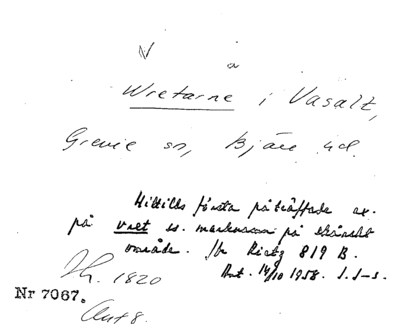 V å
Wretarne i Vasalt,
Grevie sn, Bjäre hd.
Hittills första påträffade ex.
på vret ss. marknamn på skånskt
område. Jfr Rietz 819 B.
Ant. 14/10 1958. I. I-s.
Jr. 1820
Nr 7067.
Ant 8.